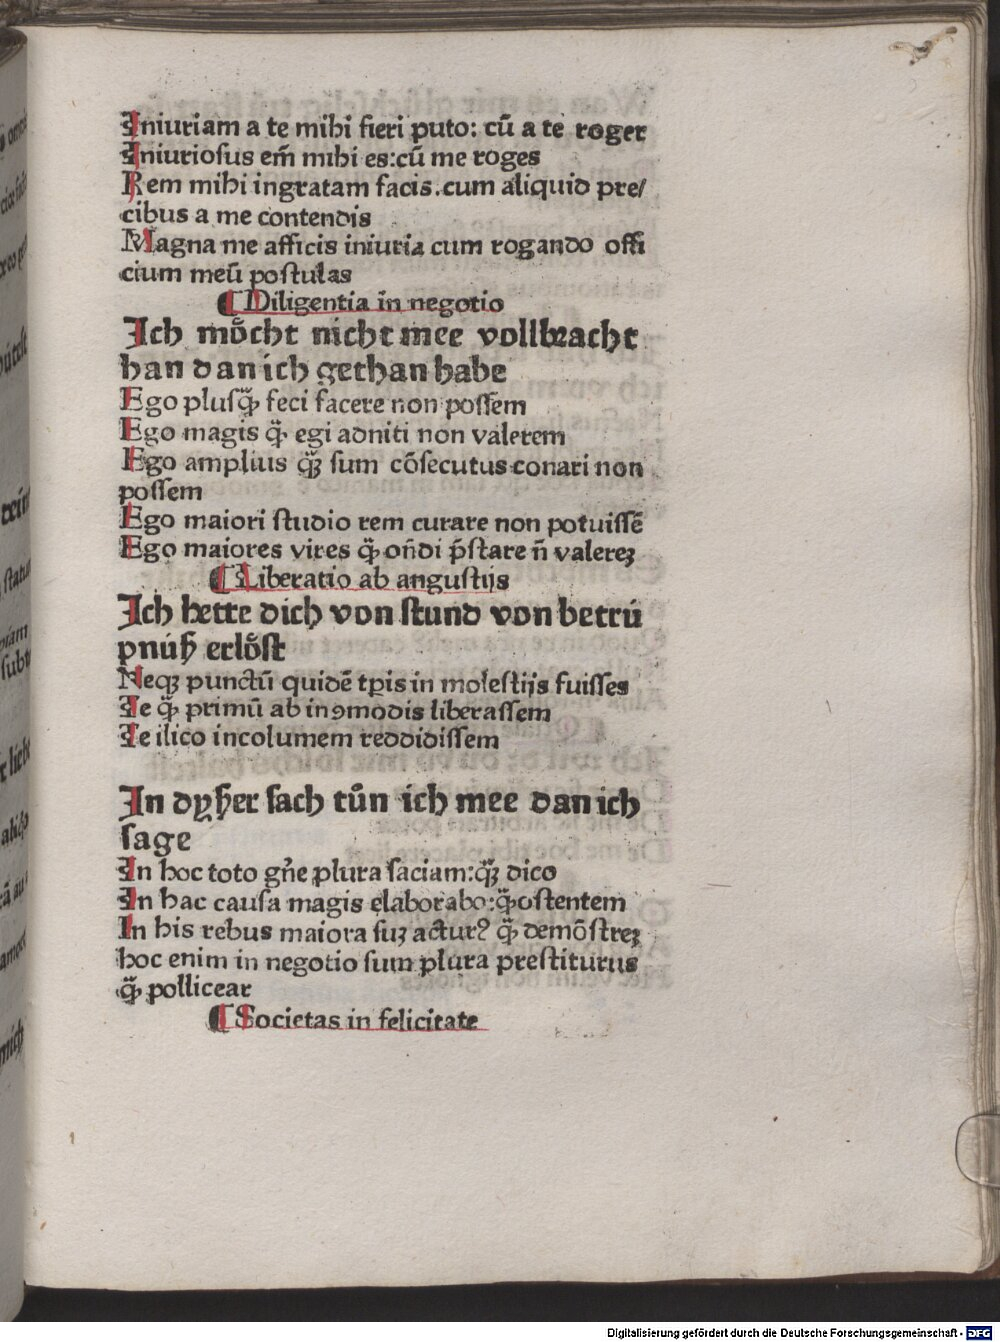 Iniuriam a te mihi fieri puto: cū a te roger
Iniuriosus em̄ mihi es:cū me roges
Rem mihi ingratam facis.cum aliquid pre/
cibus a me contendis
Magna me afficis iniuria cum rogando offi
cium meū postulas
¶ Diligentia in negotio
Ich mo͛cht nicht mee vollbracht
han dan ich gethan habe
Ego plusq̄ꝫ feci facere non possem
Ego magis q̄ꝫ egi adniti non valerem
Ego amplius q̄ꝫ sum cōsecutus conari non
possem
Ego maiori studio rem curare non potuissē
Ego maiores vires q̄ꝫ on̄di p̄stare n̄ valereꝫ
¶ Liberatio ab angustijs
Ich hette dich von stund von betrü
pnúß erlo͛st
Neqꝫ punctū quidē tp̄is in molestijs fuisses
Te q̄ꝫ primū ab inꝯmodis liberassem
Te ilico incolumem reddidissem
In dyßer sach tůn ich mee dan ich
sage
In hoc toto gn̄e plura faciam:q̄ꝫ dico
In hac causa magis elaborabo:q̄ꝫ ostentem
In his rebus maiora suꝫ actur⁹ q̄ꝫ demōstreꝫ
hoc enim in negotio sum plura prestiturus
q̄ꝫ pollicear
¶ Societas in felicitate
Digitalisierung gefördert durch die Deutsche Forschungsgemeinschaft - DFG